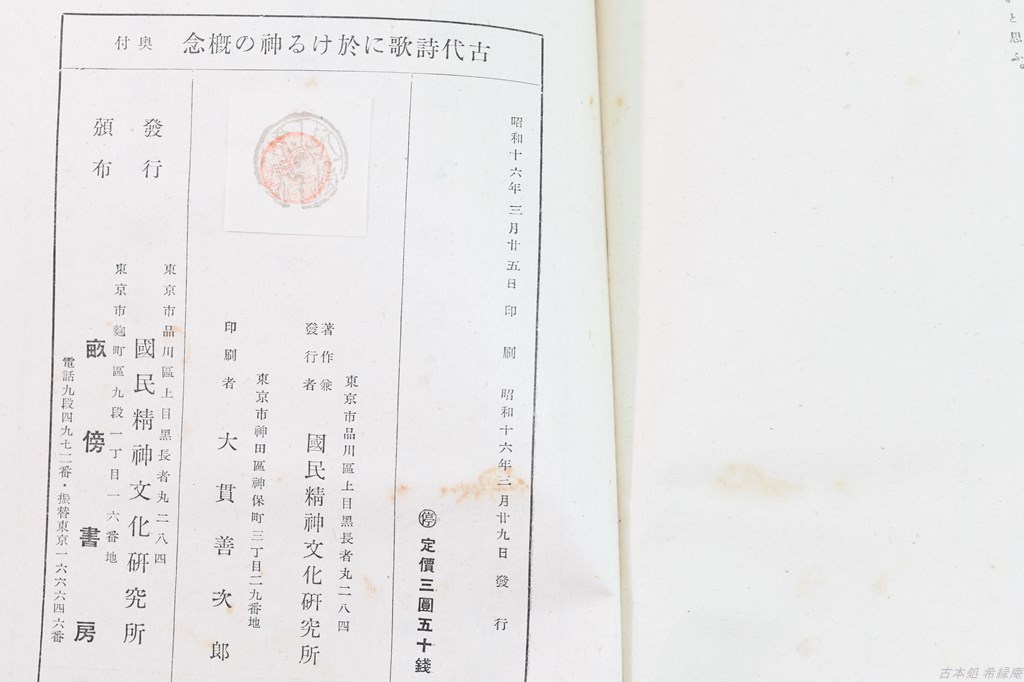 古代詩歌に於ける神の槪念 奥付
昭和十六年三月廿五日 印刷
昭和十六年三月廿九日 發行
㊡ 定價三圓五十錢
東京市品川區上目黑長者丸二八四
著作兼發行者 國民精神文化硏究所
東京市神田區神保町三丁目二九番地
印刷者 大貫善次郎
東京市品川區上目黑長者丸二八四
發行 國民精神文化硏究所
東京市麴町區九段一丁目一六番地
頒布 畝傍書房
電話九段四九七二番・振替東京一六六六四六番
と思ふ。
古本処 希縁庵